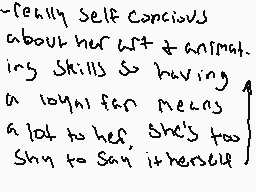 -really self concious
about her art & animat-
ing skills so having
a loyal fan means
a lot to her, she's too
shy to say it herself